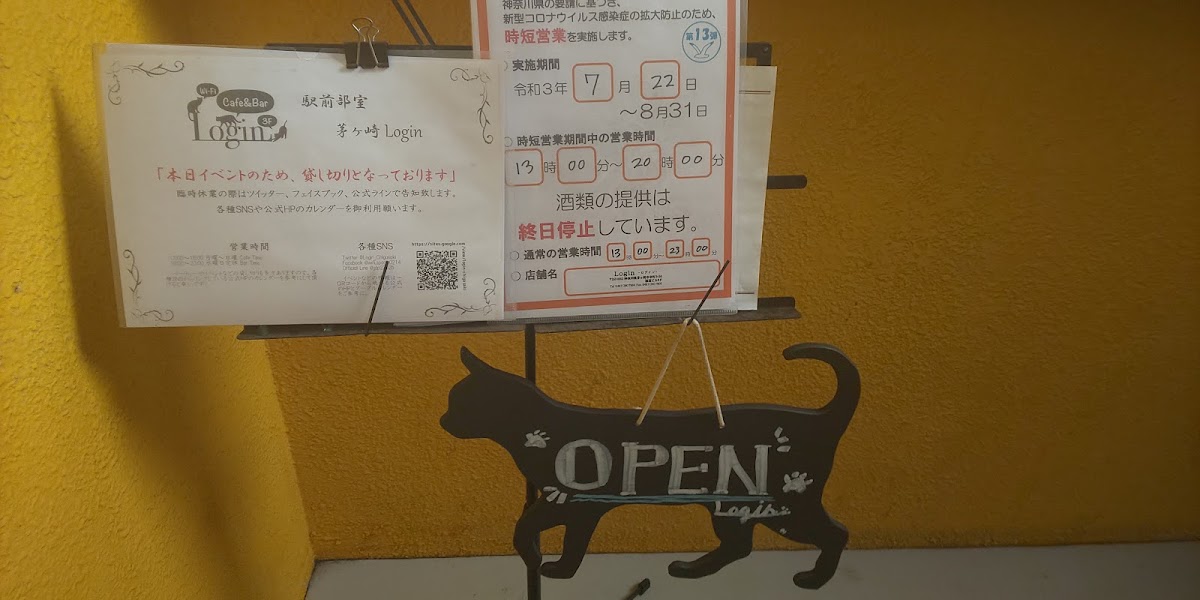 Wi-Fi
Cafe&Bar
3F
Login
駅前部室
茅ヶ崎 Login
「本日イベントのため、貸し切りとなっております」
臨時休業の際はツイッター、フェイスブック、公式ラインで告知致します。
各種SNSや公式HPのカレンダーを御利用願います。
営業時間
各種SNS
神奈川県の要請に基づき、
新型コロナウイルス感染症の拡大防止のため、
時短営業を実施します。
第13弾
実施期間
令和3年 7月22日
～8月31日
時短営業期間中の営業時間
13時00分～20時00分
酒類の提供は
終日停止しています。
通常の営業時間 13時00分～23時00分
店舗名
Login
OPEN
Login